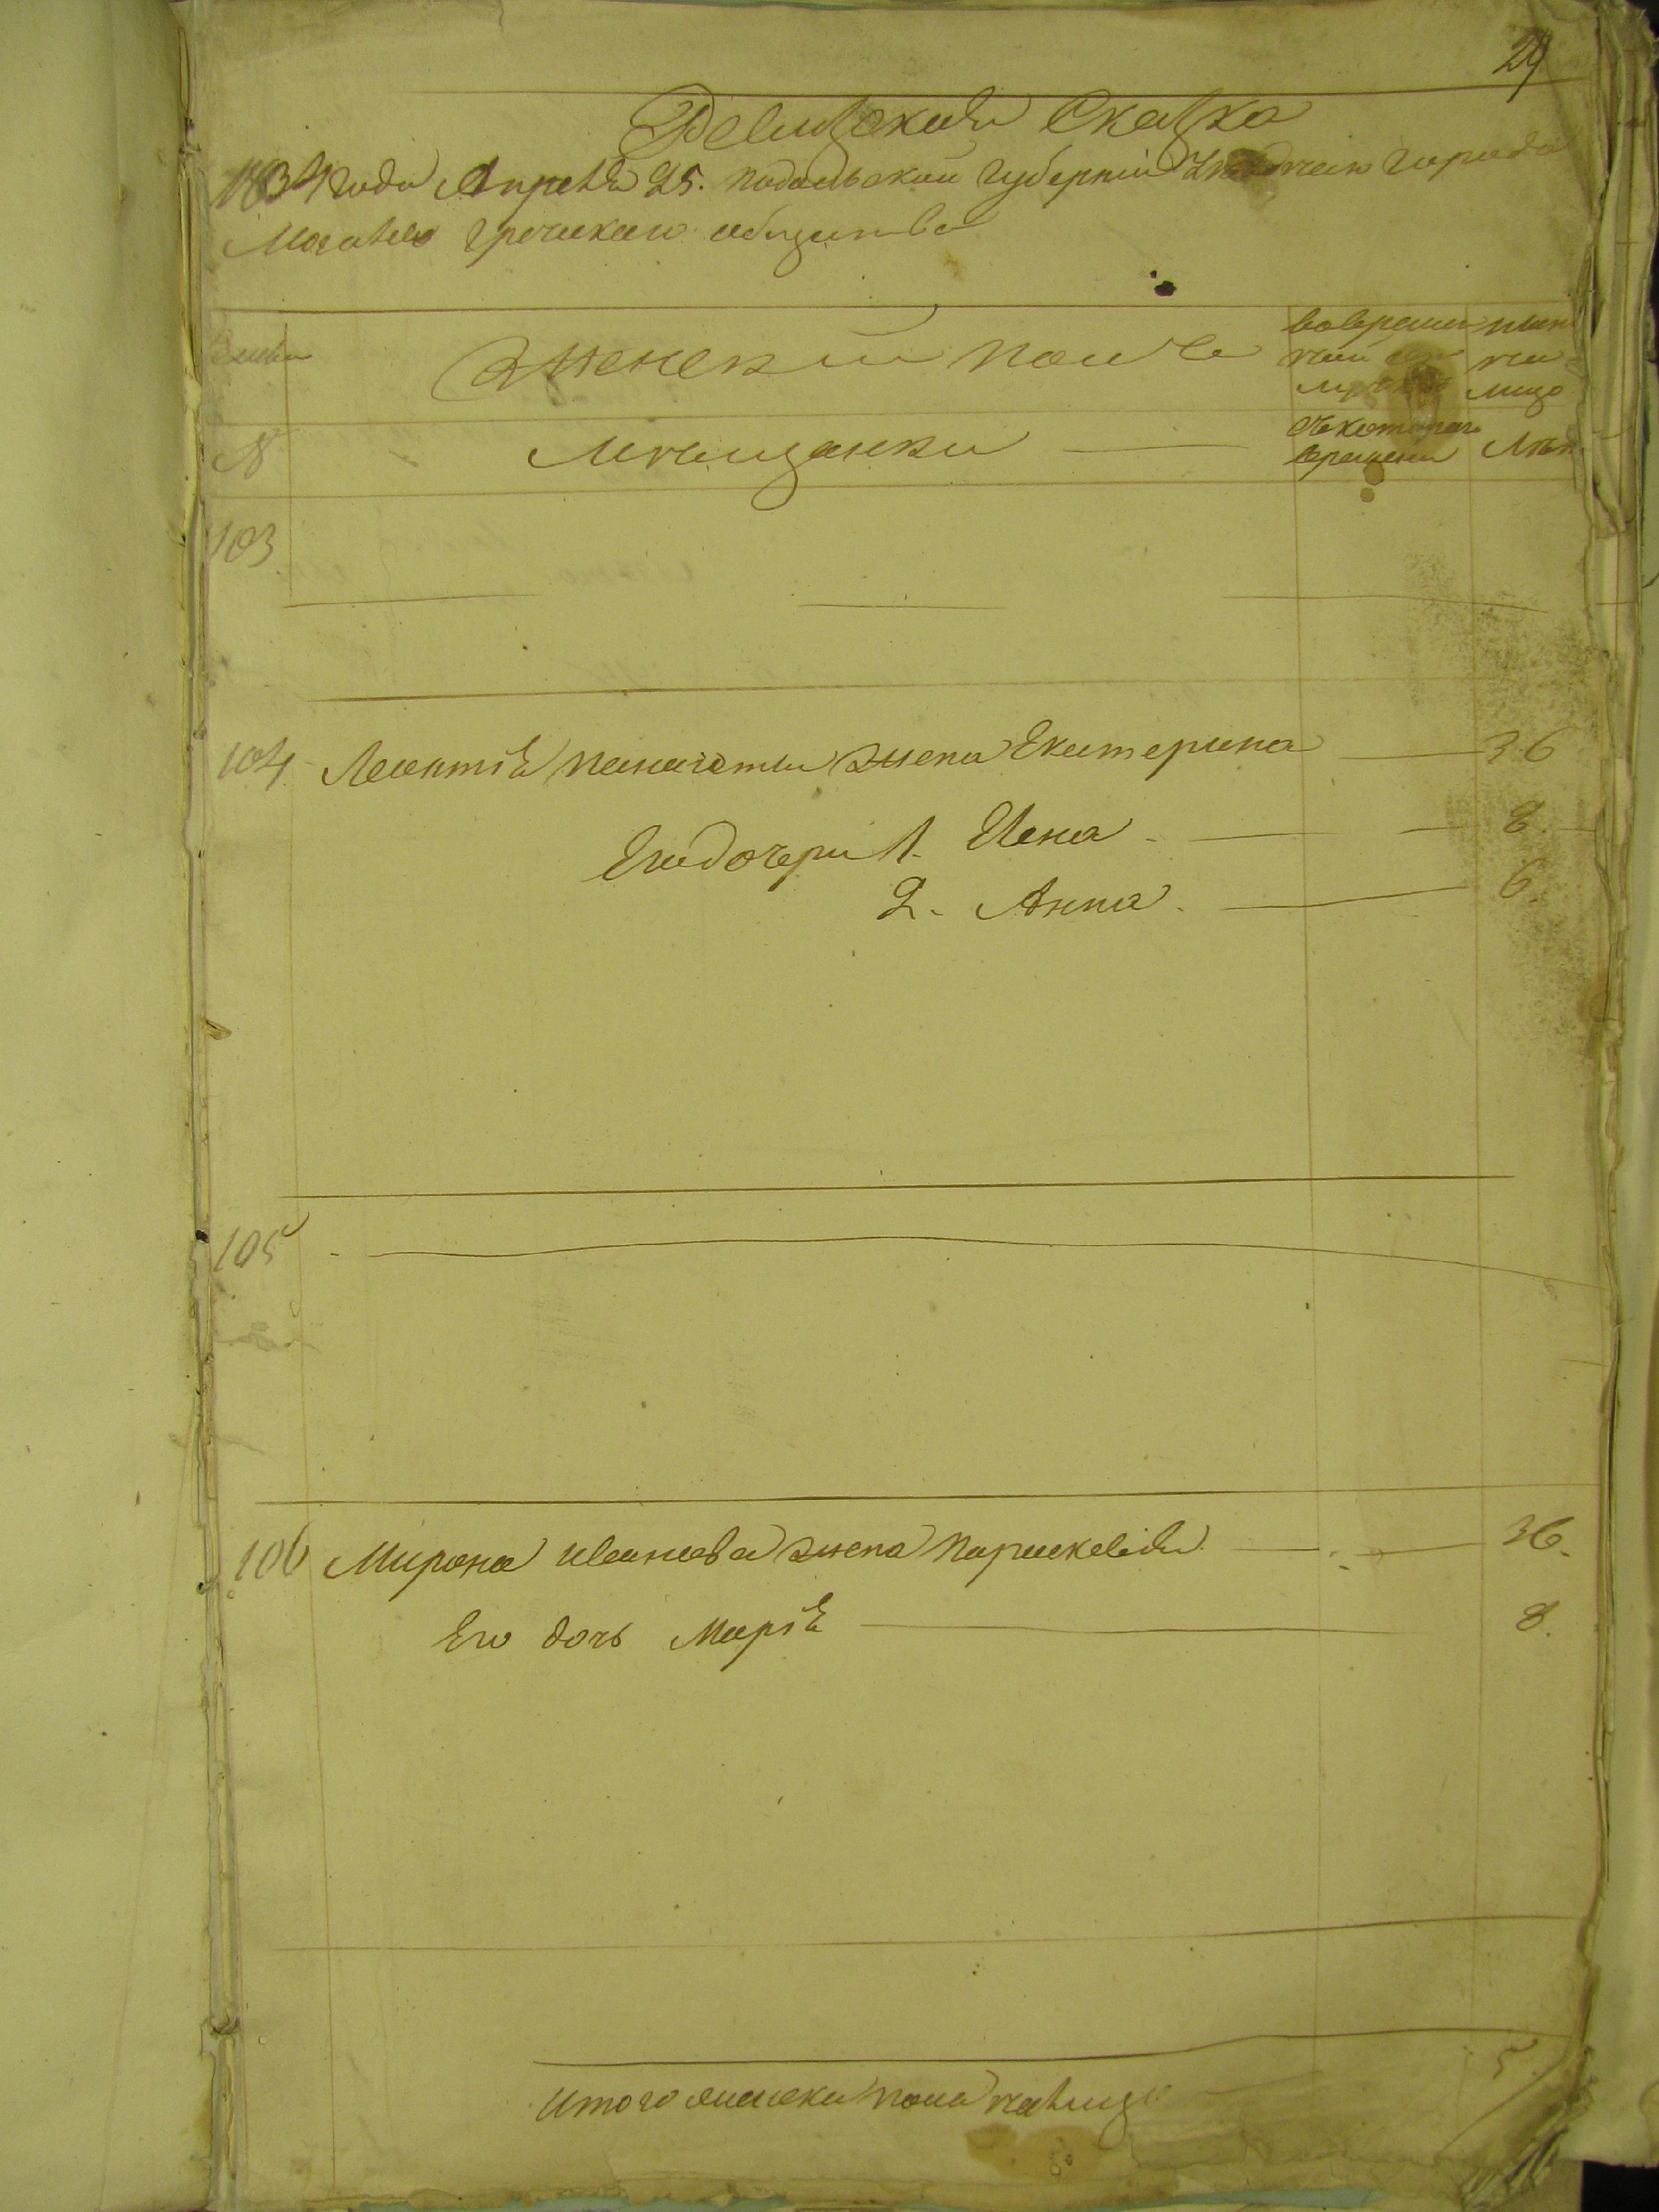 29
Ревизская Сказка
1834 года Апреля 25. подольской губернiи города
Могилева греческаго общества
Семьи
Женский полъ
во временной отлучке
ныне на лицо
№
Мещанки
Съ котораго времени
Лет
103
104 Леонтiя панаiоти жена Екатерина 36
Его дочери 1. Елена 8.
2. Анна 6.
105
106 Мирона иванова жена параскевiя 36.
Его дочь Марiя 8.
Итого женска пола налицо 5